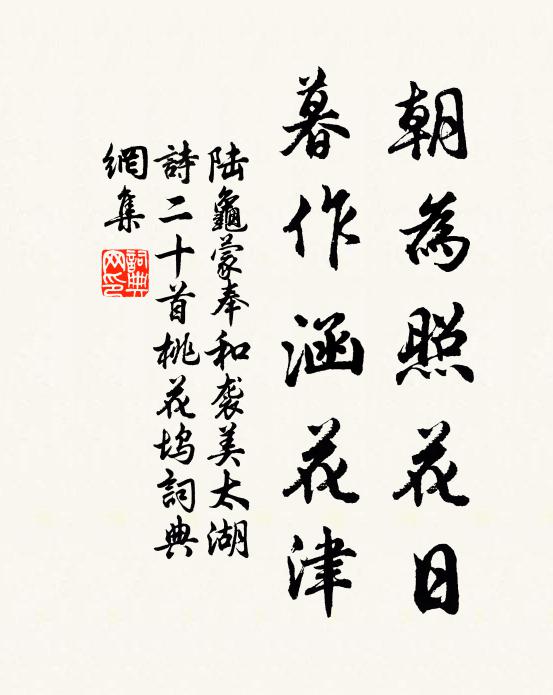 朝為照花日
暮作涵花津
陆龜蒙奉和袭美太湖
詩二十首桃花坞詞典
網集
詞典网印